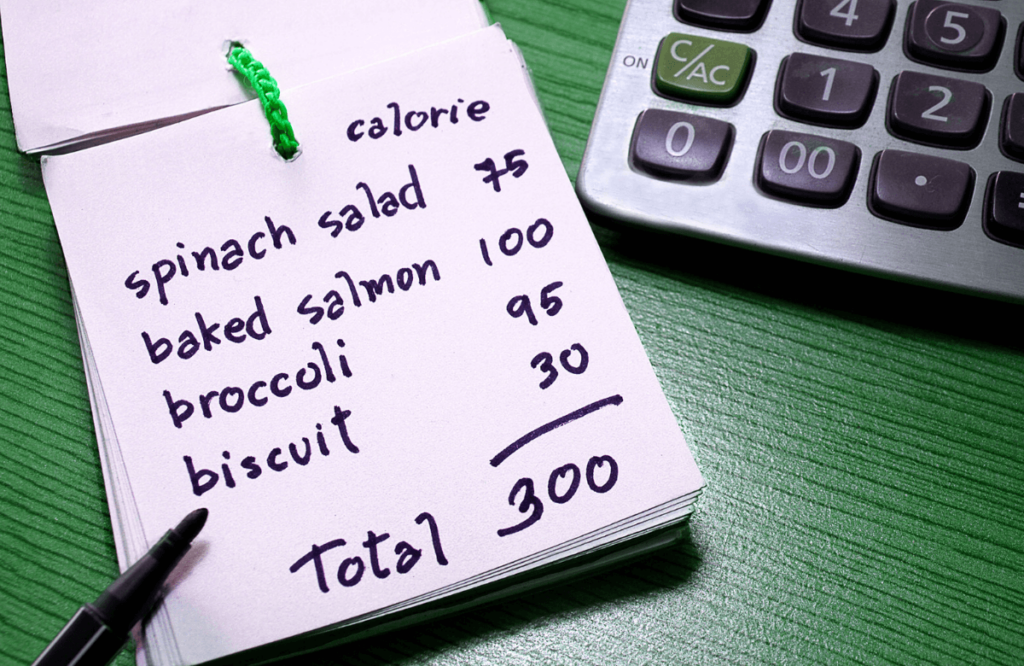 calorie
spinach salad 75
baked salmon 100
broccoli 95
biscuit 30
Total 300
4 5
ON C/AC 1 2
0 00 .